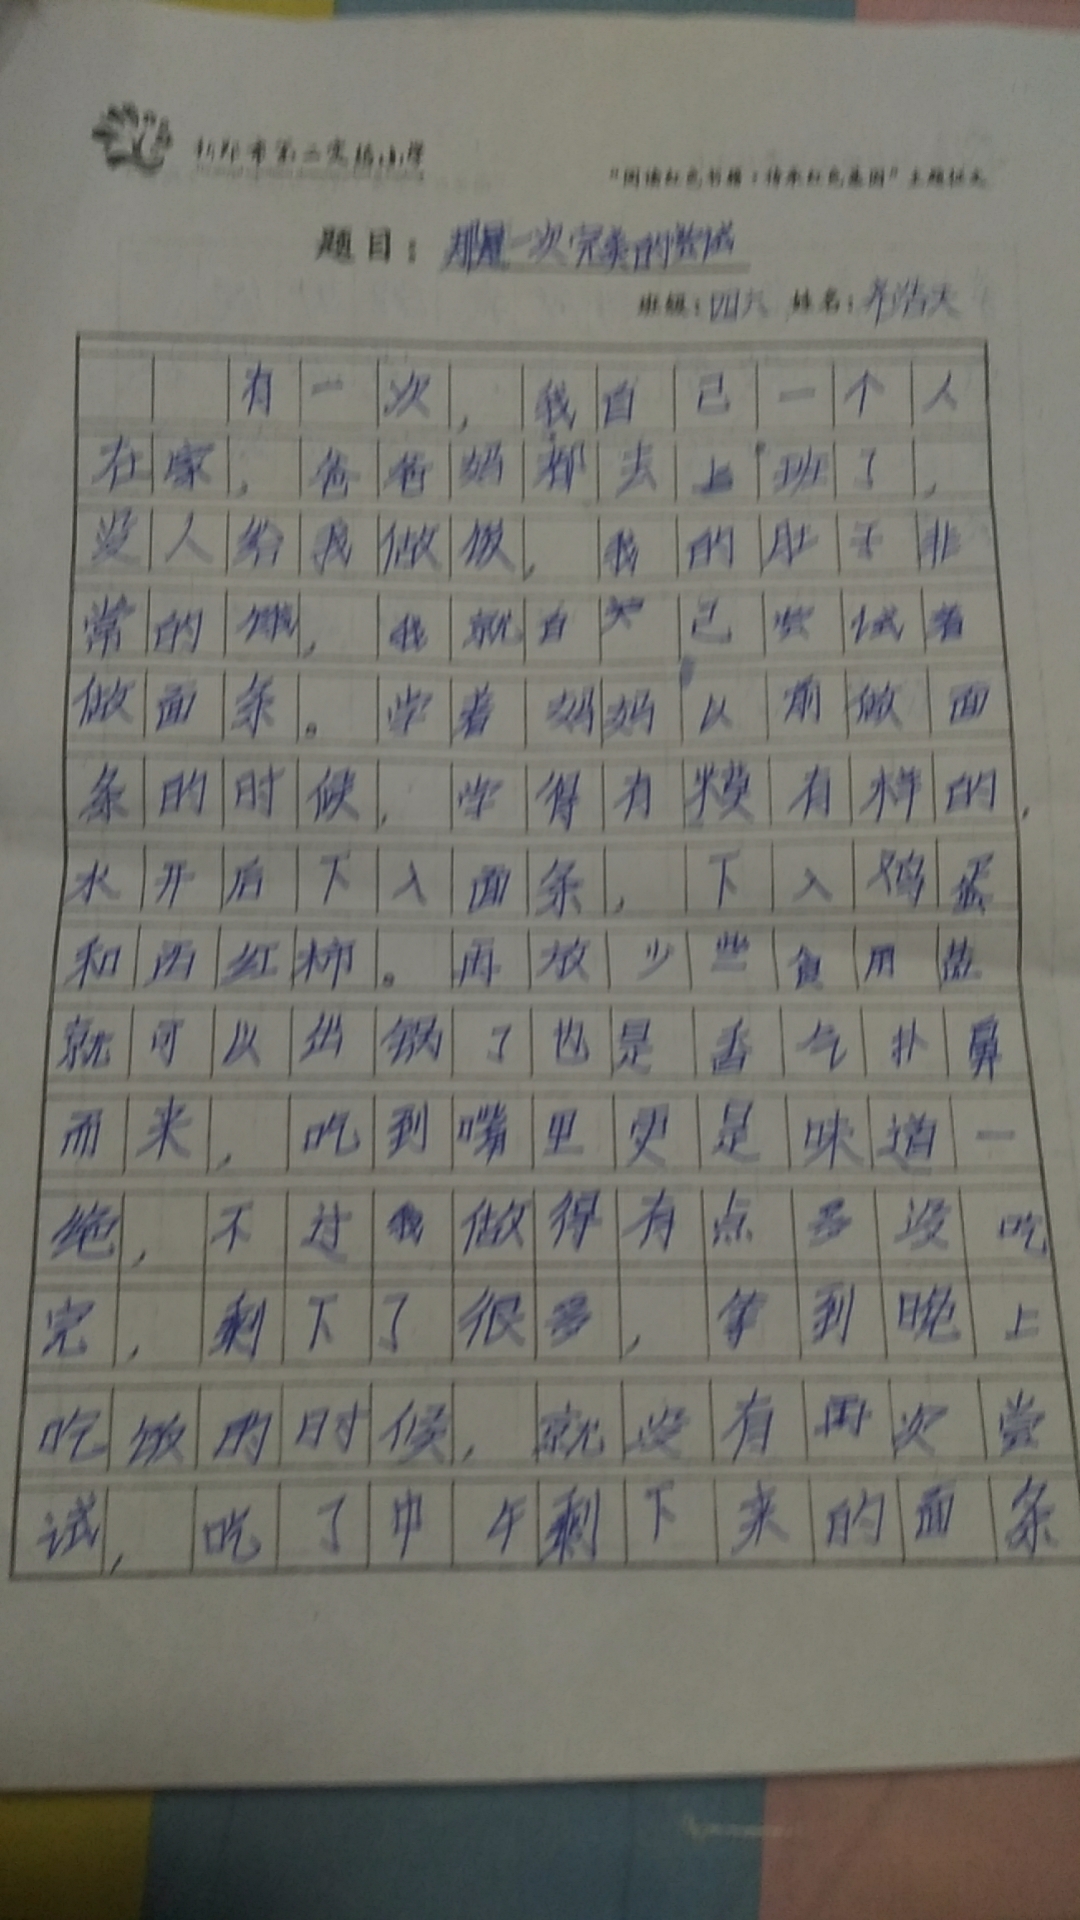 新郑市第二实验小学
“阅读红色书籍；传承红色基因”主题征文
题目：那是一次完美的尝试
班级：四六 姓名：乔浩天
有一次，我自己一个人
在家，爸爸妈都去上班了，
没人给我做饭，我的肚子非
常的饿，我就自己尝试着
做面条。学着妈妈以前做面
条的时候，学得有模有样的，
水开后下入面条，下入鸡蛋
和西红柿。再放少些食用盐
就可以出锅了也是香气扑鼻
而来，吃到嘴里更是味道一
绝，不过我做得有点多没吃
完，剩下了很多，等到晚上
吃饭的时候，就没有再次尝
试，吃了中午剩下来的面条